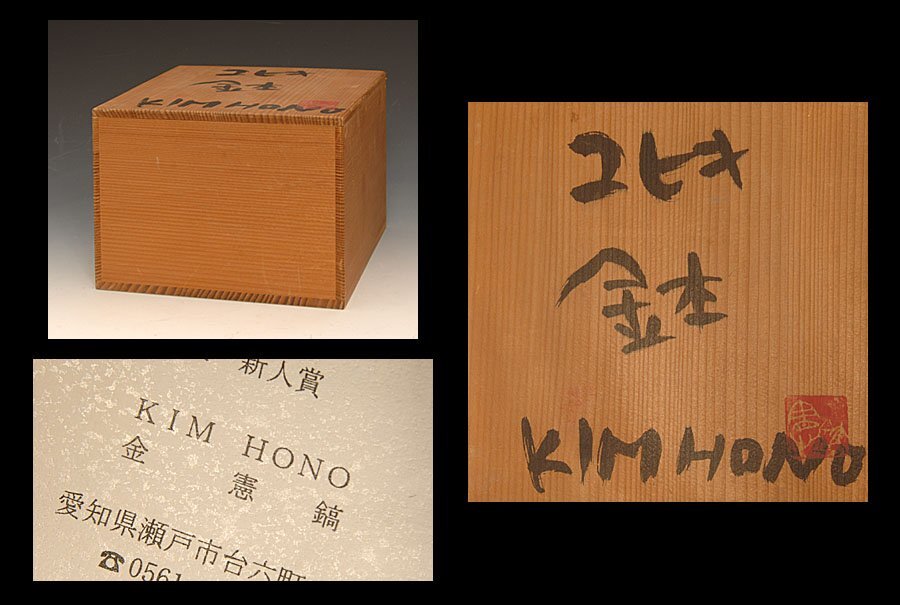 コヒキ
鉢
KIM HONO
新人賞
KIM HONO
金 憲 鎬
愛知県瀬戸市台六町
☎0561
コヒキ
鉢
KIM HONO